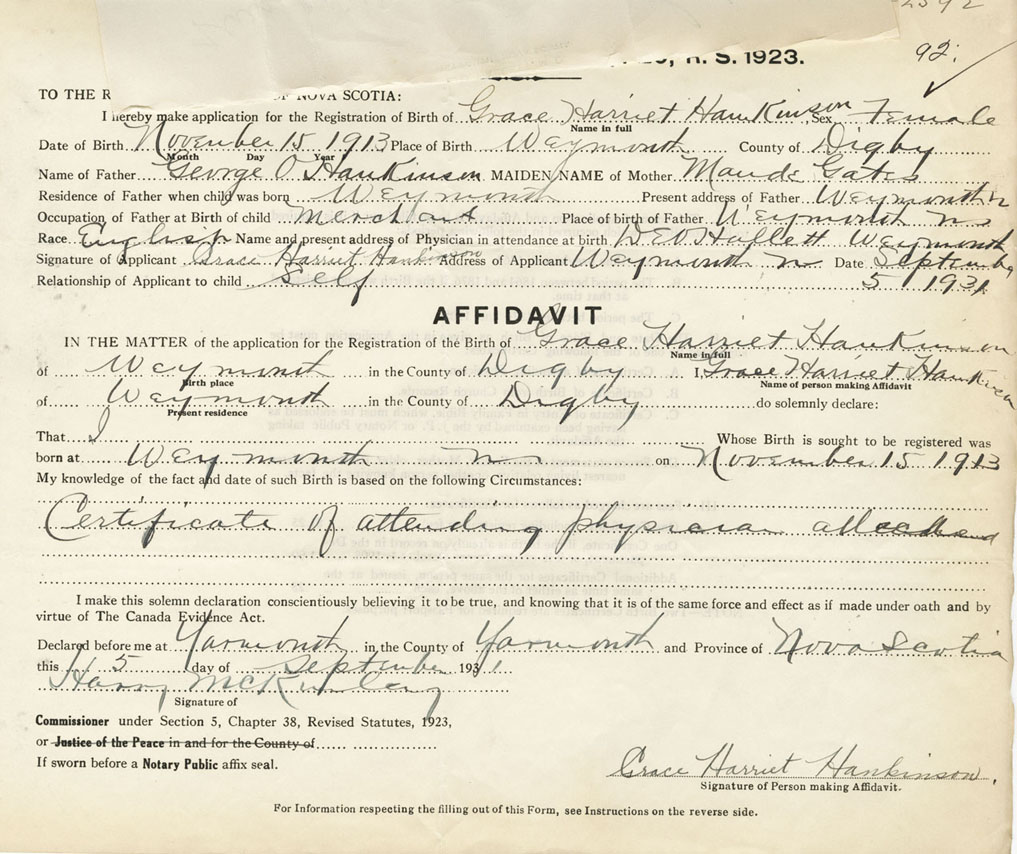 2592
R. S. 1923.
92.
TO THE R OF NOVA SCOTIA:
I hereby make application for the Registration of Birth of Grace Harriet Hankinson Sex Female
Name in full
Date of Birth November 15 1913 Place of Birth Weymouth County of Digby
Month Day Year
Name of Father George O Hankinson MAIDEN NAME of Mother Maude Gates
Residence of Father when child was born Weymouth Present address of Father Weymouth N
Occupation of Father at Birth of child Merchant Place of birth of Father Weymouth N
Race English Name and present address of Physician in attendance at birth Hallett Weymouth
Signature of Applicant Grace Harriet Hankinson Address of Applicant Weymouth N Date September
Relationship of Applicant to child Self 5 1931
AFFIDAVIT
IN THE MATTER of the application for the Registration of the Birth of Grace Harriet Hankinson
Name in full
of Weymouth in the County of Digby I, Grace Harriet Hankinson
Birth place Name of person making Affidavit
of Weymouth in the County of Digby do solemnly declare:
Present residence
That I Whose Birth is sought to be registered was
born at Weymouth N on November 15 1913
My knowledge of the fact and date of such Birth is based on the following Circumstances:
Certificate of attending physician
I make this solemn declaration conscientiously believing it to be true, and knowing that it is of the same force and effect as if made under oath and by
virtue of The Canada Evidence Act.
Declared before me at Yarmouth in the County of Yarmouth and Province of Nova Scotia
this 5 day of September 1931
Harry McKinley
Signature of
Commissioner under Section 5, Chapter 38, Revised Statutes, 1923,
or Justice of the Peace in and for the County of
If sworn before a Notary Public affix seal.
Grace Harriet Hankinson.
Signature of Person making Affidavit.
For Information respecting the filling out of this Form, see Instructions on the reverse side.